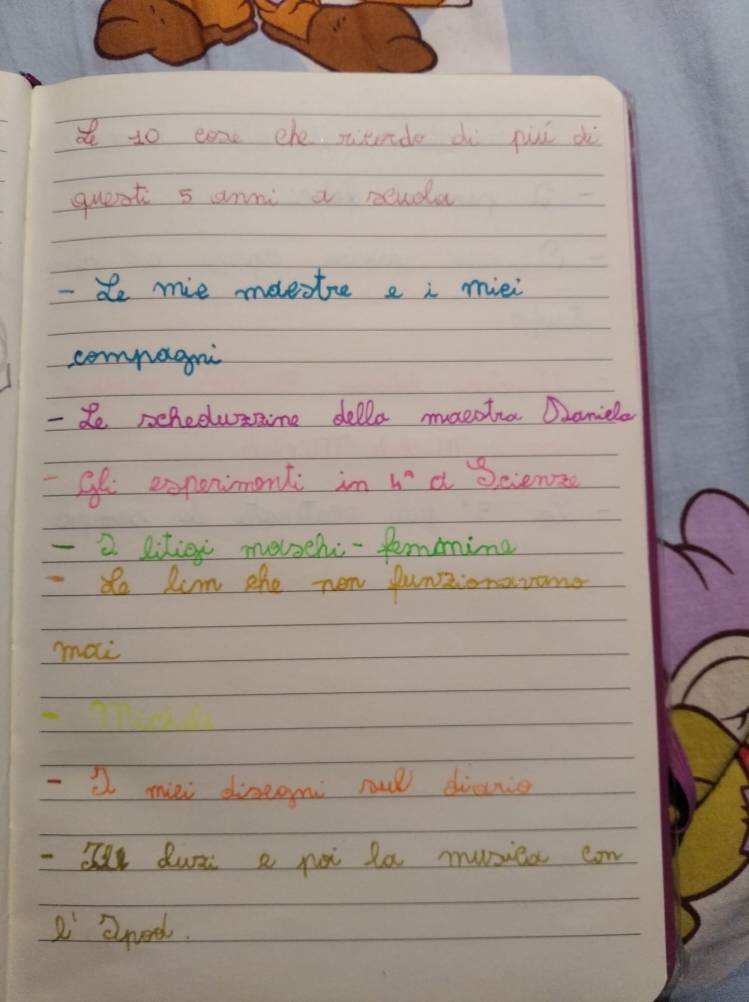 Le 10 cose che ricordo di piú di
questi 5 anni a scuola
- Le mie maestre e i miei
compagni
- Le scheduzzine della maestra Daniela
- Gli esperimenti in 4ª di Scienze
- I litigi maschi-femmine
- Le lim che non funzionavano
mai
- Michele
- I miei disegni sul diario
- Duzi e poi la musica con
l'Ipod.